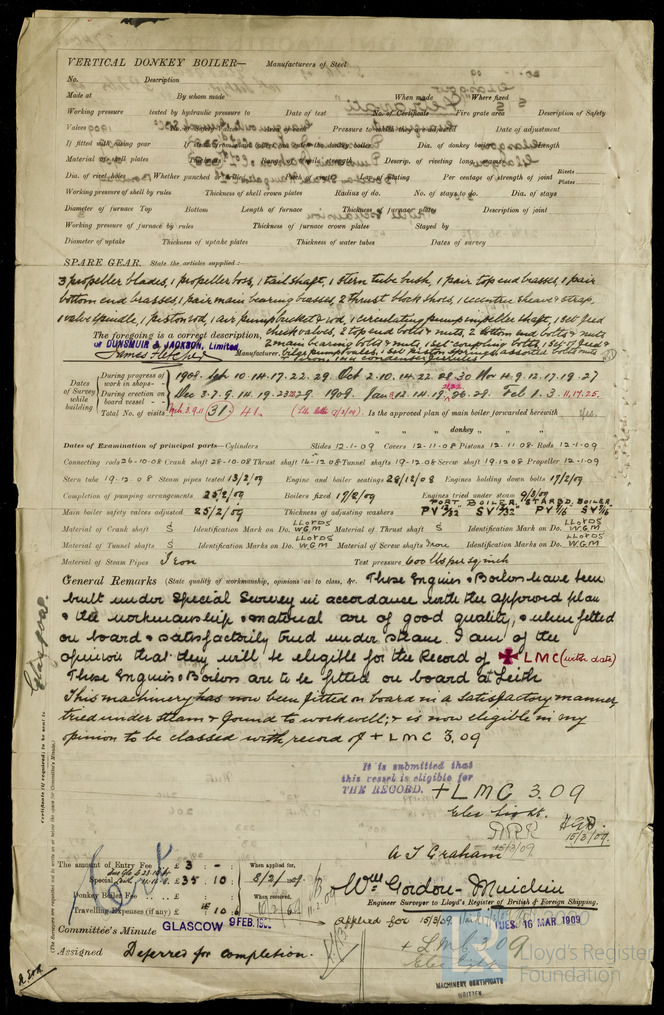 VERTICAL DONKEY BOILER— Manufacturers of Steel
No. Description
Made at By whom made When made Where fixed
Working pressure tested by hydraulic pressure to Date of test No. of Certificate Fire grate area Description of Safety
Valves Pressure to which they are adjusted Date of adjustment
If fitted with easing gear Dia. of donkey boiler Length
Material of shell plates Thickness Descrip. of riveting long. seams
Dia. of rivet holes Whether punched or drilled Pitch of rivets Lap of plating Per centage of strength of joint Rivets Plates
Working pressure of shell by rules Thickness of shell crown plates Radius of do. No. of stays to do. Dia. of stays
Diameter of furnace Top Bottom Length of furnace Thickness of furnace plates Description of joint
Working pressure of furnace by rules Thickness of furnace crown plates Stayed by
Diameter of uptake Thickness of uptake plates Thickness of water tubes Dates of survey
SPARE GEAR. State the articles supplied:—
3 propeller blades, 1 propeller boss, 1 tail shaft, 1 stern tube bush, 1 pair top end brasses, 1 pair
bottom end brasses, 1 pair main bearing brasses, 2 thrust block shoes, 1 eccentric sheave & strap,
1 valve spindle, 1 piston rod, 1 air pump bucket & rod, 1 circulating pump impeller shaft, 1 set feed
check valves, 2 top end bolts & nuts, 2 bottom end bolts & nuts
The foregoing is a correct description, 2 main bearing bolts & nuts, 1 set coupling bolts, 1 set of feed &
of DUNSMUIR & JACKSON, Limited.
James Fletcher Manufacturer. bilge pump valves, 1 set piston springs, assorted bolts & nuts
Dates of Survey while building
During progress of work in shops— 1908. Sep 10. 14. 17. 22. 29. Oct 2. 10. 14. 22. 28. 30 Nov 4. 9. 12. 17. 19. 27
During erection on board vessel— Dec 3. 7. 9. 14. 19. 23. 29. 1909. Jan 8. 12. 14. 19. 26. 29. Feb 1. 3. 11. 17. 25.
Total No. of visits Mch. 3. 9. 11 31 41. Is the approved plan of main boiler forwarded herewith Yes.
" " " donkey " " "
Dates of Examination of principal parts—Cylinders Slides 12-1-09 Covers 12-11-08 Pistons 12-11-08 Rods 12-1-09
Connecting rods 26-10-08 Crank shaft 28-10-08 Thrust shaft 14-12-08 Tunnel shafts 19-12-08 Screw shaft 19-12-08 Propeller 12-1-09
Stern tube 19-12-08 Steam pipes tested 13/2/09 Engine and boiler seatings 28/12/08 Engines holding down bolts 17/2/09
Completion of pumping arrangements 25/2/09 Boilers fixed 17/2/09 Engines tried under steam 9/3/09
PORT BOILER, STARBD. BOILER
Main boiler safety valves adjusted 25/2/09 Thickness of adjusting washers PV 13/32 SV 9/32 PV 7/16 SV 7/16
Material of Crank shaft S Identification Mark on Do. LLOYDS W.G.M Material of Thrust shaft S Identification Mark on Do. LLOYDS W.G.M
Material of Tunnel shafts S Identification Marks on Do. LLOYDS W.G.M Material of Screw shafts Iron Identification Marks on Do. LLOYDS W.G.M
Material of Steam Pipes Iron Test pressure 600 lbs per sq inch
General Remarks (State quality of workmanship, opinions as to class, &c. These Engines & Boilers have been
built under Special Survey in accordance with the approved plan
& the workmanship & material are of good quality, & when fitted
on board & satisfactorily tried under steam. I am of the
opinion that they will be eligible for the Record of ✠ LMC (with date)
These Engines & Boilers are to be fitted on board at Leith
This machinery has now been fitted on board in a satisfactory manner,
tried under steam & found to work well; & is now eligible in my
opinion to be classed with record of + LMC 3.09
It is submitted that
this vessel is eligible for
THE RECORD. + LMC 3.09
Elec Light.
15/3/09
15/3/09.
A T Graham
The amount of Entry Fee £ 3 : - : When applied for,
Special £ 35 . 10 : 8/2/09
Donkey Boiler Fee £ When received,
Travelling Expenses (if any) £ 10
Wm Gordon-Muichin
Engineer Surveyor to Lloyd's Register of British & Foreign Shipping.
Committee's Minute GLASGOW 9 FEB. 1909 applied for 15/3/09 TUES. 16 MAR 1909
Assigned Deferred for completion. + LMC 3.09
Elec Light
MACHINERY CERTIFICATE
WRITTEN
Glasgow.
Certificate (if required) to be sent to
(The Surveyors are requested not to write on or below the space for Committee's Minute.)
Lloyd's Register
Foundation